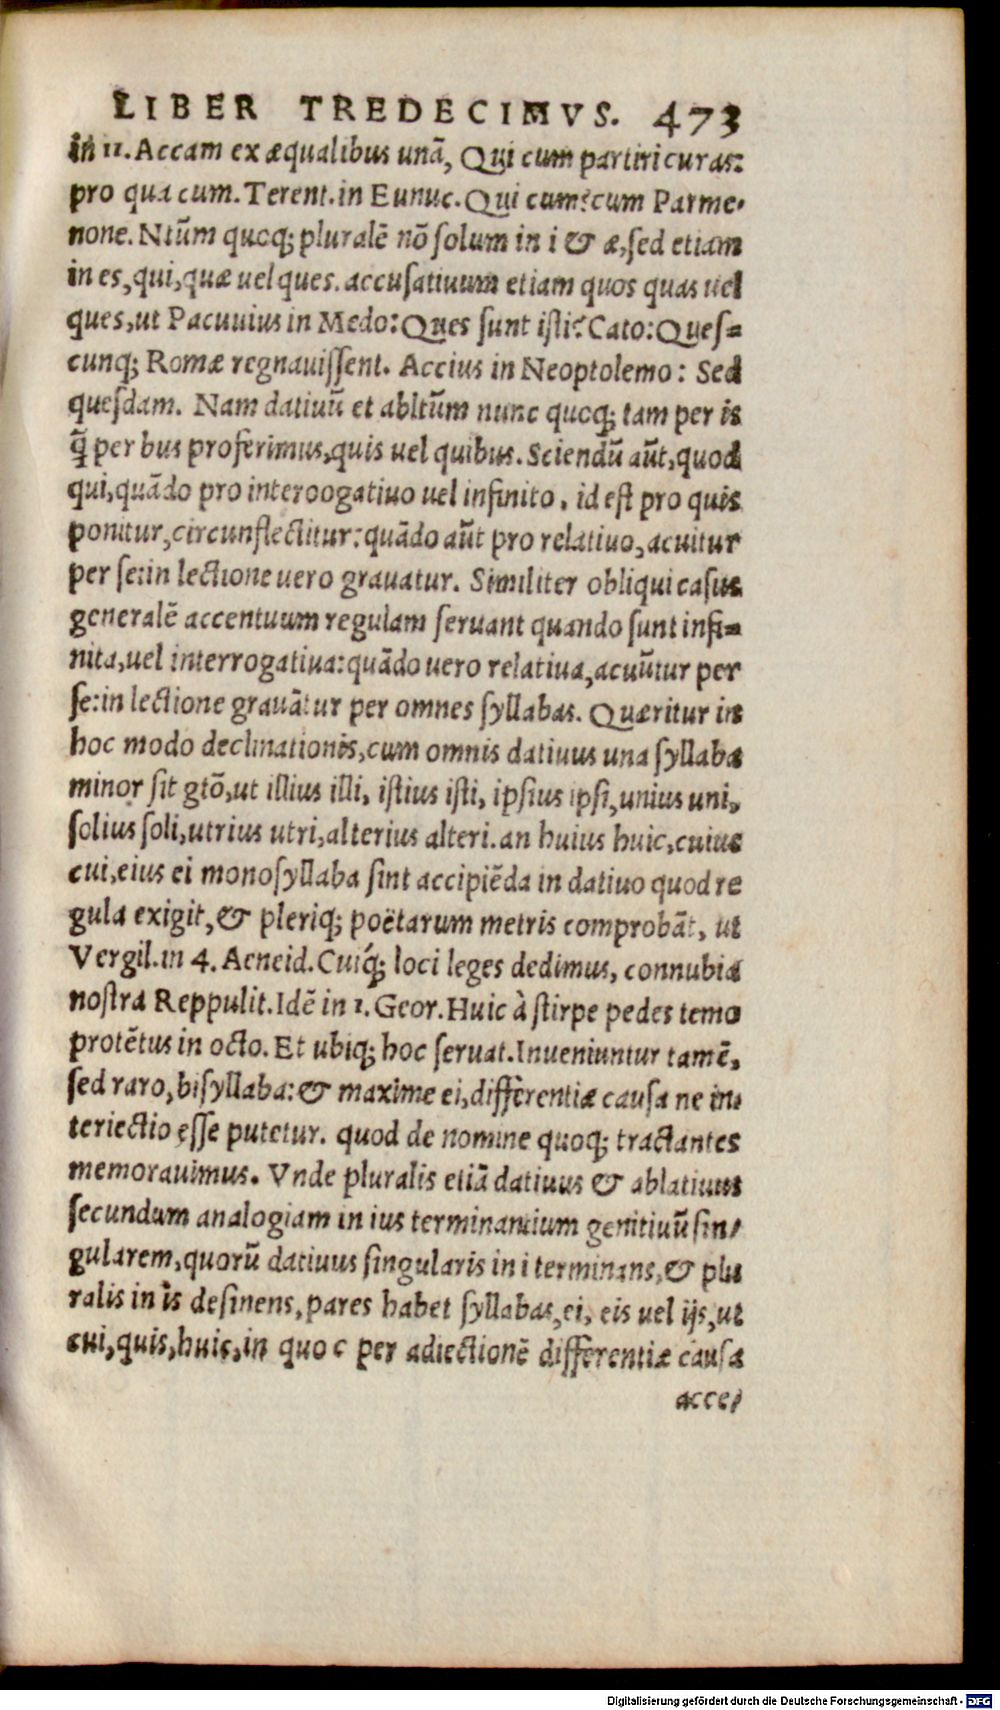 LIBER TREDECIMVS. 473
in 11. Accam ex æqualibus unā, Qui cum partiri curas:
pro qua cum. Terent. in Eunuc. Qui cum? cum Parme-
none. Ntūm quoq; pluralē nō solum in i & æ, sed etiam
in es, qui, quæ uel ques. accusatiuum etiam quos quas uel
ques, ut Pacuuius in Medo: Ques sunt isti? Cato: Ques=
cunq; Romæ regnauissent. Accius in Neoptolemo: Sed
quesdam. Nam datiuū et abltūm nunc quoq; tam per is
q̄ per bus proferimus, quis uel quibus. Sciendū aūt, quod
qui, quādo pro interoogatiuo uel infinito, id est pro quis
ponitur, circunflectitur: quādo aūt pro relatiuo, acuitur
per se: in lectione uero grauatur. Similiter obliqui casus
generalē accentuum regulam seruant quando sunt infi=
nita, uel interrogatiua: quādo uero relatiua, acuūtur per
se: in lectione grauātur per omnes syllabas. Quæritur in
hoc modo declinationis, cum omnis datiuus una syllaba
minor sit gtō, ut illius illi, istius isti, ipsius ipsi, unius uni,
solius soli, utrius utri, alterius alteri. an huius huic, cuius
cui, eius ei monosyllaba sint accipiēda in datiuo quod re
gula exigit, & pleriq; poëtarum metris comprobāt, ut
Vergil. in 4. Aeneid. Cuiq́; loci leges dedimus, connubia
nostra Reppulit. Idē in 1. Geor. Huic à stirpe pedes temo
protētus in octo. Et ubiq; hoc seruat. Inueniuntur tamē,
sed raro, bisyllaba: & maxime ei, differentiæ causa ne in-
teriectio esse putetur. quod de nomine quoq; tractantes
memorauimus. Vnde pluralis etiā datiuus & ablatiuus
secundum analogiam in ius terminantium genitiuū sin-
gularem, quorū datiuus singularis in i terminans, & plu
ralis in is desinens, pares habet syllabas, ei, eis uel ijs, ut
cui, quis, huic, in quo c per adiectionē differentiæ causa
acce-
Digitalisierung gefördert durch die Deutsche Forschungsgemeinschaft - DFG